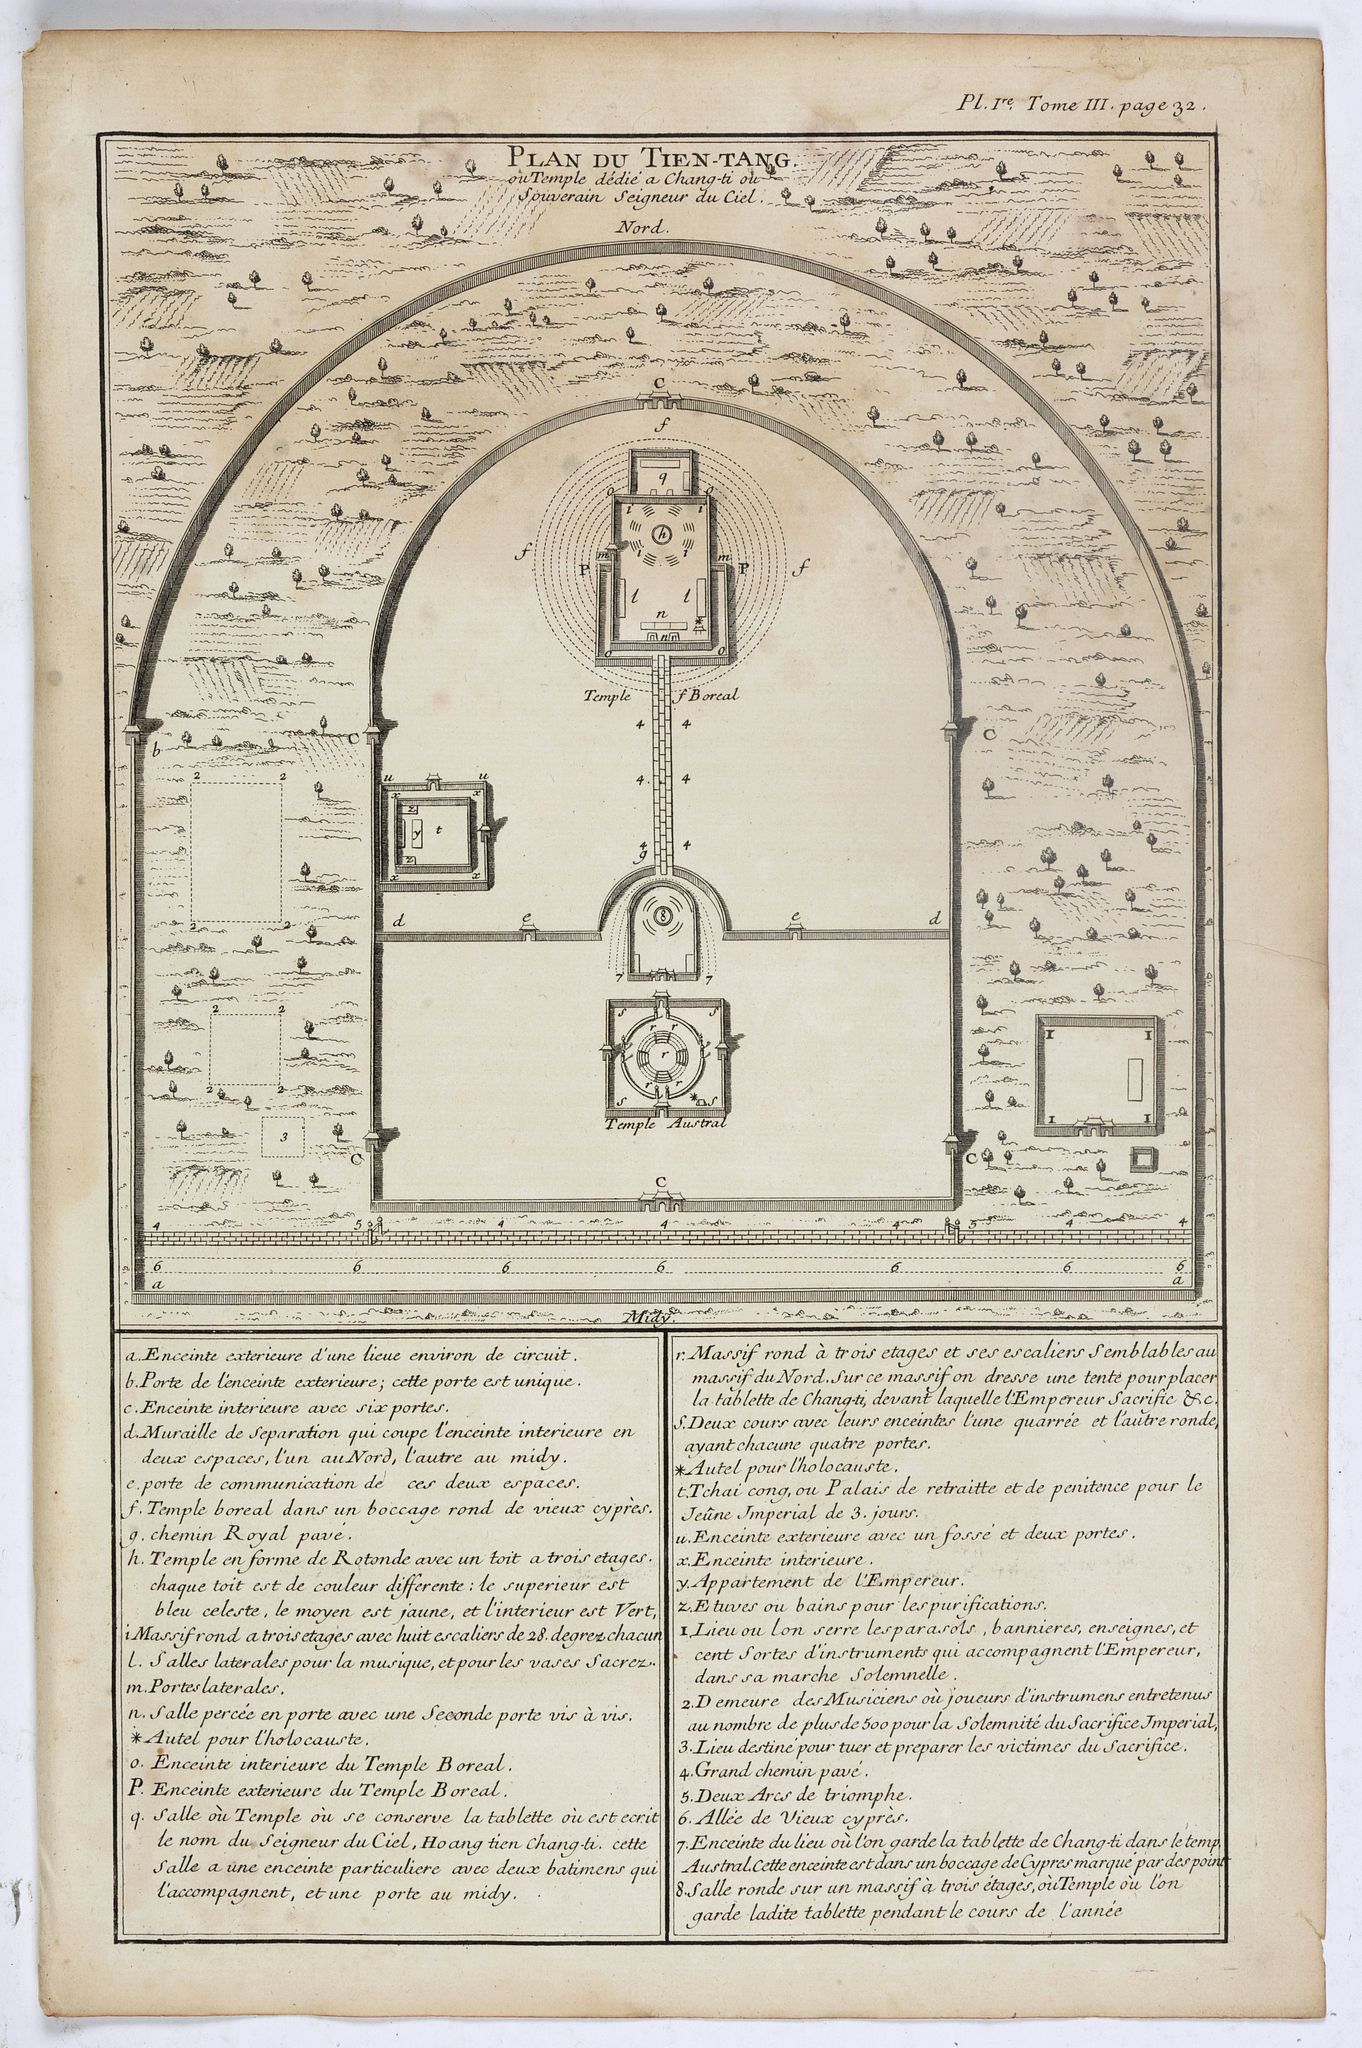 Pl. I.re Tome III. page 32.
PLAN DU TIEN-TANG.
ou Temple dédié a Chang-ti ou
Souverain Seigneur du Ciel.
Nord.
C
f
q
o o
i i
h
f m i i m f
P P
l l
n *
n
o o
Temple f Boreal
4 4
b C C
u u
2 2 4 4
x x
z
y t
z
4 4
g
x x
8
2 2 d e e d
7 7
2 2 s s 1 1
r r
r
2 2 r r 1 1
s * s
Temple Austral
3
C C
C
4 5 4 4 4 5 4 4
6 6 6 6 6 6 6
a a
Midy.
a. Enceinte exterieure d'une lieue environ de circuit.
b. Porte de l'enceinte exterieure; cette porte est unique.
c. Enceinte interieure avec six portes.
d. Muraille de separation qui coupe l'enceinte interieure en
deux espaces, l'un au Nord, l'autre au midy.
e. porte de communication de ces deux espaces.
f. Temple boreal dans un boccage rond de vieux cyprès.
g. chemin Royal pavé.
h. Temple en forme de Rotonde avec un toit a trois etages.
chaque toit est de couleur differente: le superieur est
bleu celeste, le moyen est jaune, et l'interieur est Vert,
i. Massif rond a trois etages avec huit escaliers de 28. degrez chacun
l. Salles laterales pour la musique, et pour les vases Sacrez.
m. Portes laterales.
n. Salle percée en porte avec une Seconde porte vis à vis.
* Autel pour l'holocauste.
o. Enceinte interieure du Temple Boreal.
P. Enceinte exterieure du Temple Boreal.
q. Salle où Temple où se conserve la tablette où est ecrit
le nom du Seigneur du Ciel, Hoang tien Chang-ti. cette
Salle a une enceinte particuliere avec deux batimens qui
l'accompagnent, et une porte au midy.
r. Massif rond à trois etages et ses escaliers Semblables au
massif du Nord. Sur ce massif on dresse une tente pour placer
la tablette de Chang-ti, devant laquelle l'Empereur Sacrifie &c.
S. Deux cours avec leurs enceintes l'une quarrée et l'autre ronde,
ayant chacune quatre portes.
* Autel pour l'holocauste.
t. Tchai cong, ou Palais de retraitte et de penitence pour le
Jeûne Imperial de 3. jours.
u. Enceinte exterieure avec un fossé et deux portes.
x. Enceinte interieure.
y. Appartement de l'Empereur.
z. Etuves ou bains pour les purifications.
1. Lieu ou l'on serre les parasols, bannieres, enseignes, et
cent Sortes d'instruments qui accompagnent l'Empereur,
dans sa marche Solemnelle.
2. Demeure des Musiciens où joueurs d'instrumens entretenus
au nombre de plus de 500 pour la Solemnité du Sacrifice Imperial,
3. Lieu destiné pour tuer et preparer les victimes du Sacrifice.
4. Grand chemin pavé.
5. Deux Arcs de triomphe.
6. Allée de Vieux cyprès.
7. Enceinte du lieu où l'on garde la tablette de Chang-ti dans le temp.
Austral. Cette enceinte est dans un boccage de Cypres marqué par des point
8. Salle ronde sur un massif à trois étages, où Temple où l'on
garde ladite tablette pendant le cours de l'année